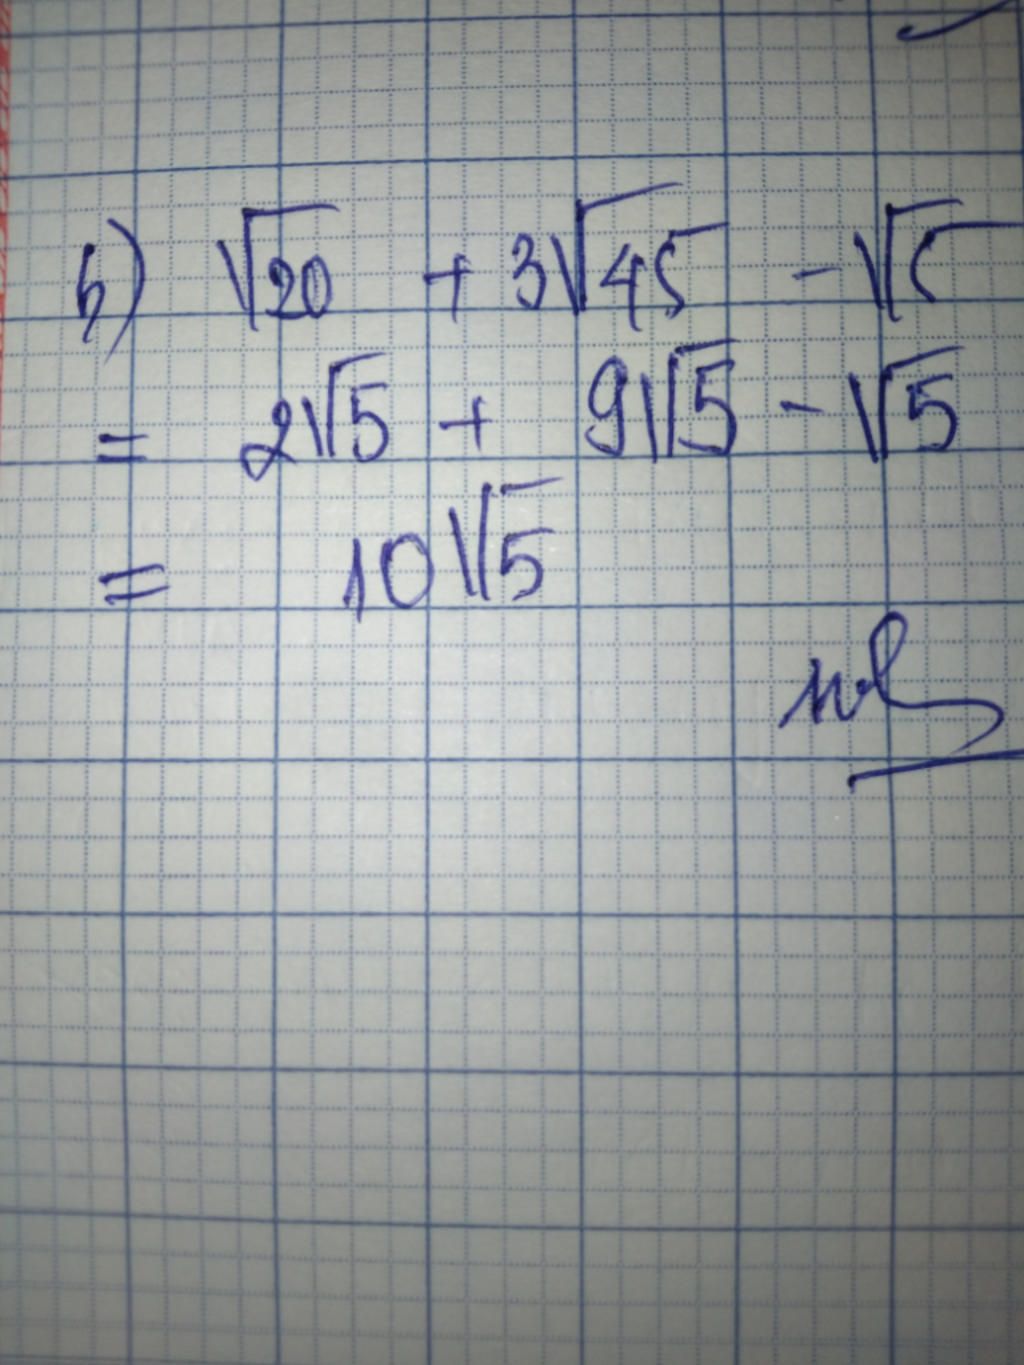 b) √20 + 3√45 - √5
= 2√5 + 9√5 - √5
= 10√5